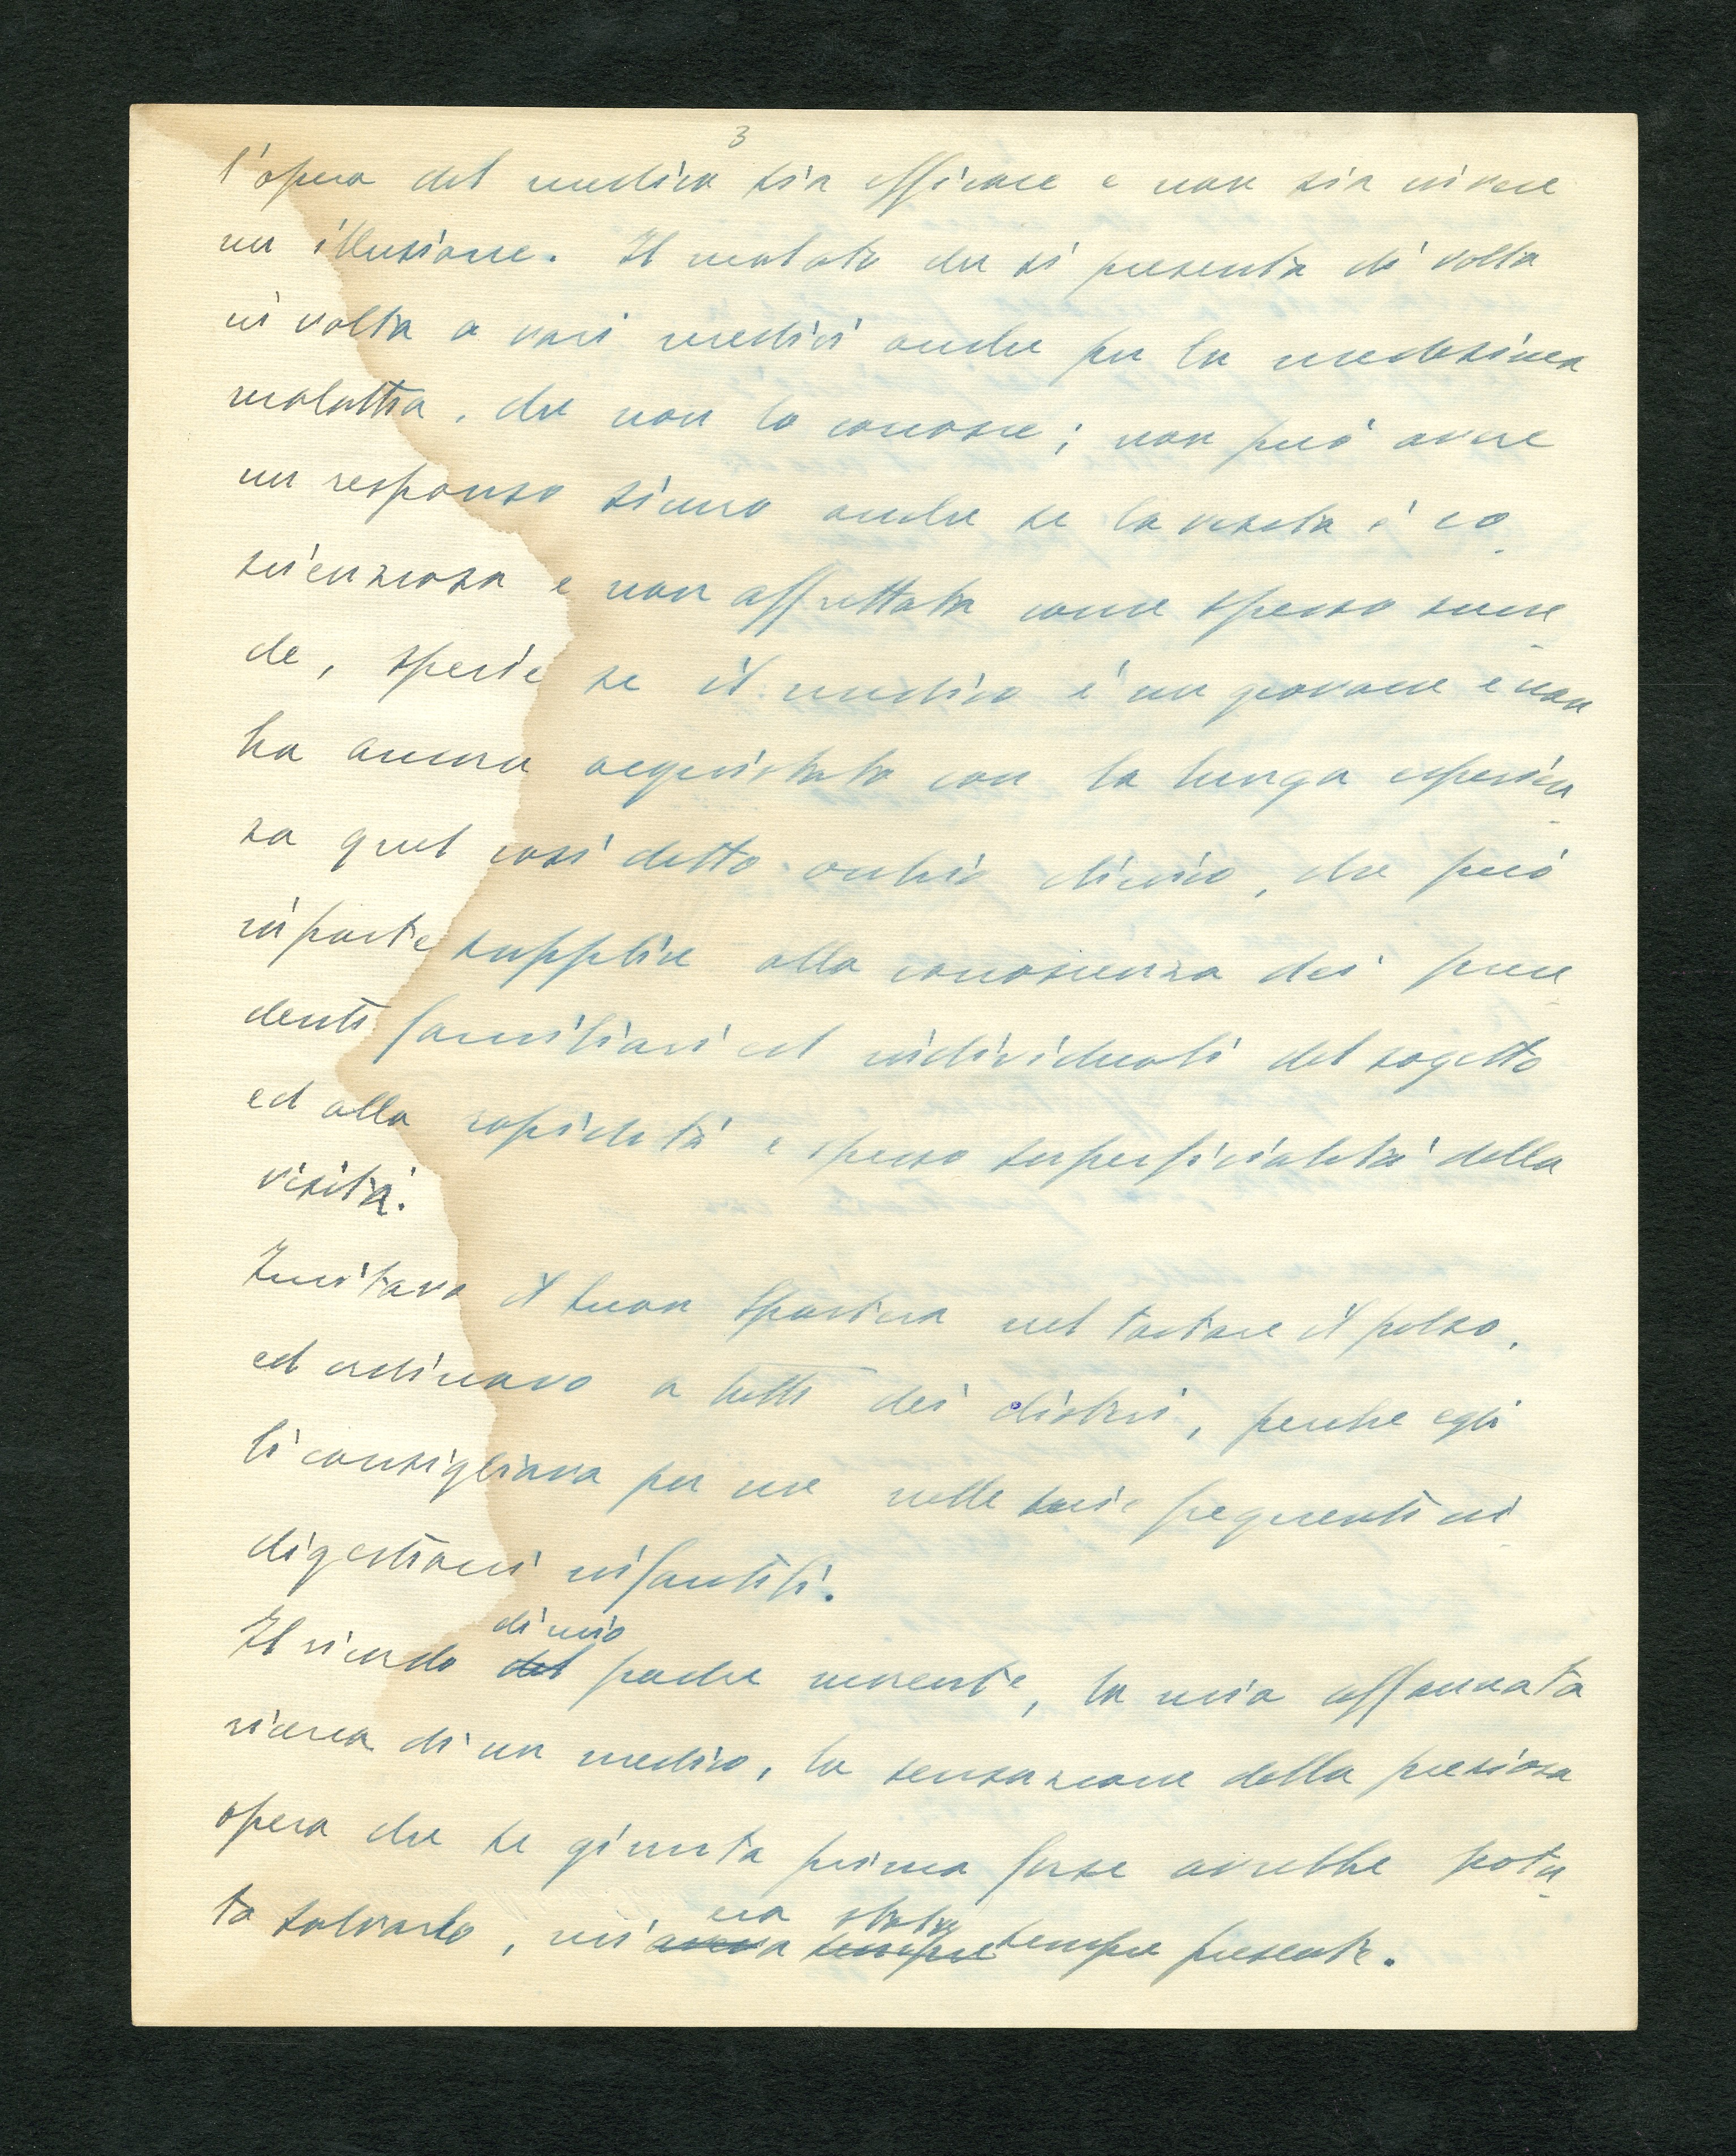 3
l'opera del medico sia efficace e non sia invece
un illusione. Il malato che si presenta di volta
in volta a vari medici anche per la medesima
malattia, che non lo conosce; non può avere
un responso sicuro anche se la visita è co_
scienziosa e non affrettata come spesso succe_
de, specie se il medico è un giovane e non
ha ancora acquistato con la lunga esperien_
za quel così detto occhio clinico, che può
in parte supplire alla conoscenza dei prece_
denti famigliari ed individuali del sogetto
ed alla rapidità e spesso superficialità della
visita.
Imitavo il buon Spartera nel tastare il polso,
ed ordinavo a tutti dei clisteri, perche egli
li consigliava per me nelle mie frequenti in_
digestioni infantili.
di mio
Il ricordo del padre morente, la mia affannata
ricerca di un medico, la sensazione della preziosa
opera che se giunta prima forse avrebbe potu_
era stata
to salvarlo, mi aveva sempre sempre presente.